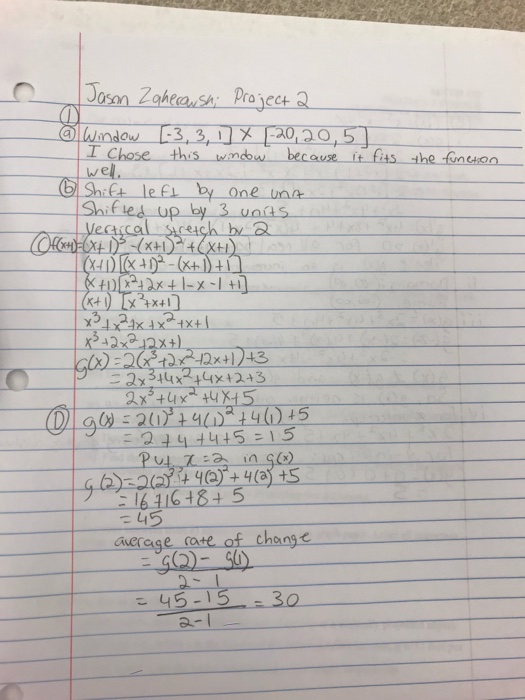 Jason Project 2
①
ⓐ Window [-3, 3, 1] X [-20, 20, 5]
I Chose this window because it fits the function
well.
ⓑ Shift left by one unit
Shifted up by 3 units
Vertical stretch by 2
Ⓒ f(x+1)=(x+1)³-(x+1)²+(x+1)
(x+1)[(x+1)²-(x+1)+1]
(x+1)[x²+2x+1-x-1+1]
(x+1) [x²+x+1]
x³+x²+x+x²+x+1
x³+2x²+2x+1)
g(x)=2(x³+2x²+2x+1)+3
= 2x³+4x²+4x+2+3
2x³+4x²+4x+5
Ⓓ g(x) = 2(1)³+4(1)²+4(1)+5
= 2+4+4+5=15
Put x=2 in g(x)
g(2)=2(2)³+4(2)²+4(2)+5
= 16+16+8+5
= 45
average rate of change
= g(2)- g(1)
2-1
= 45-15 = 30
2-1